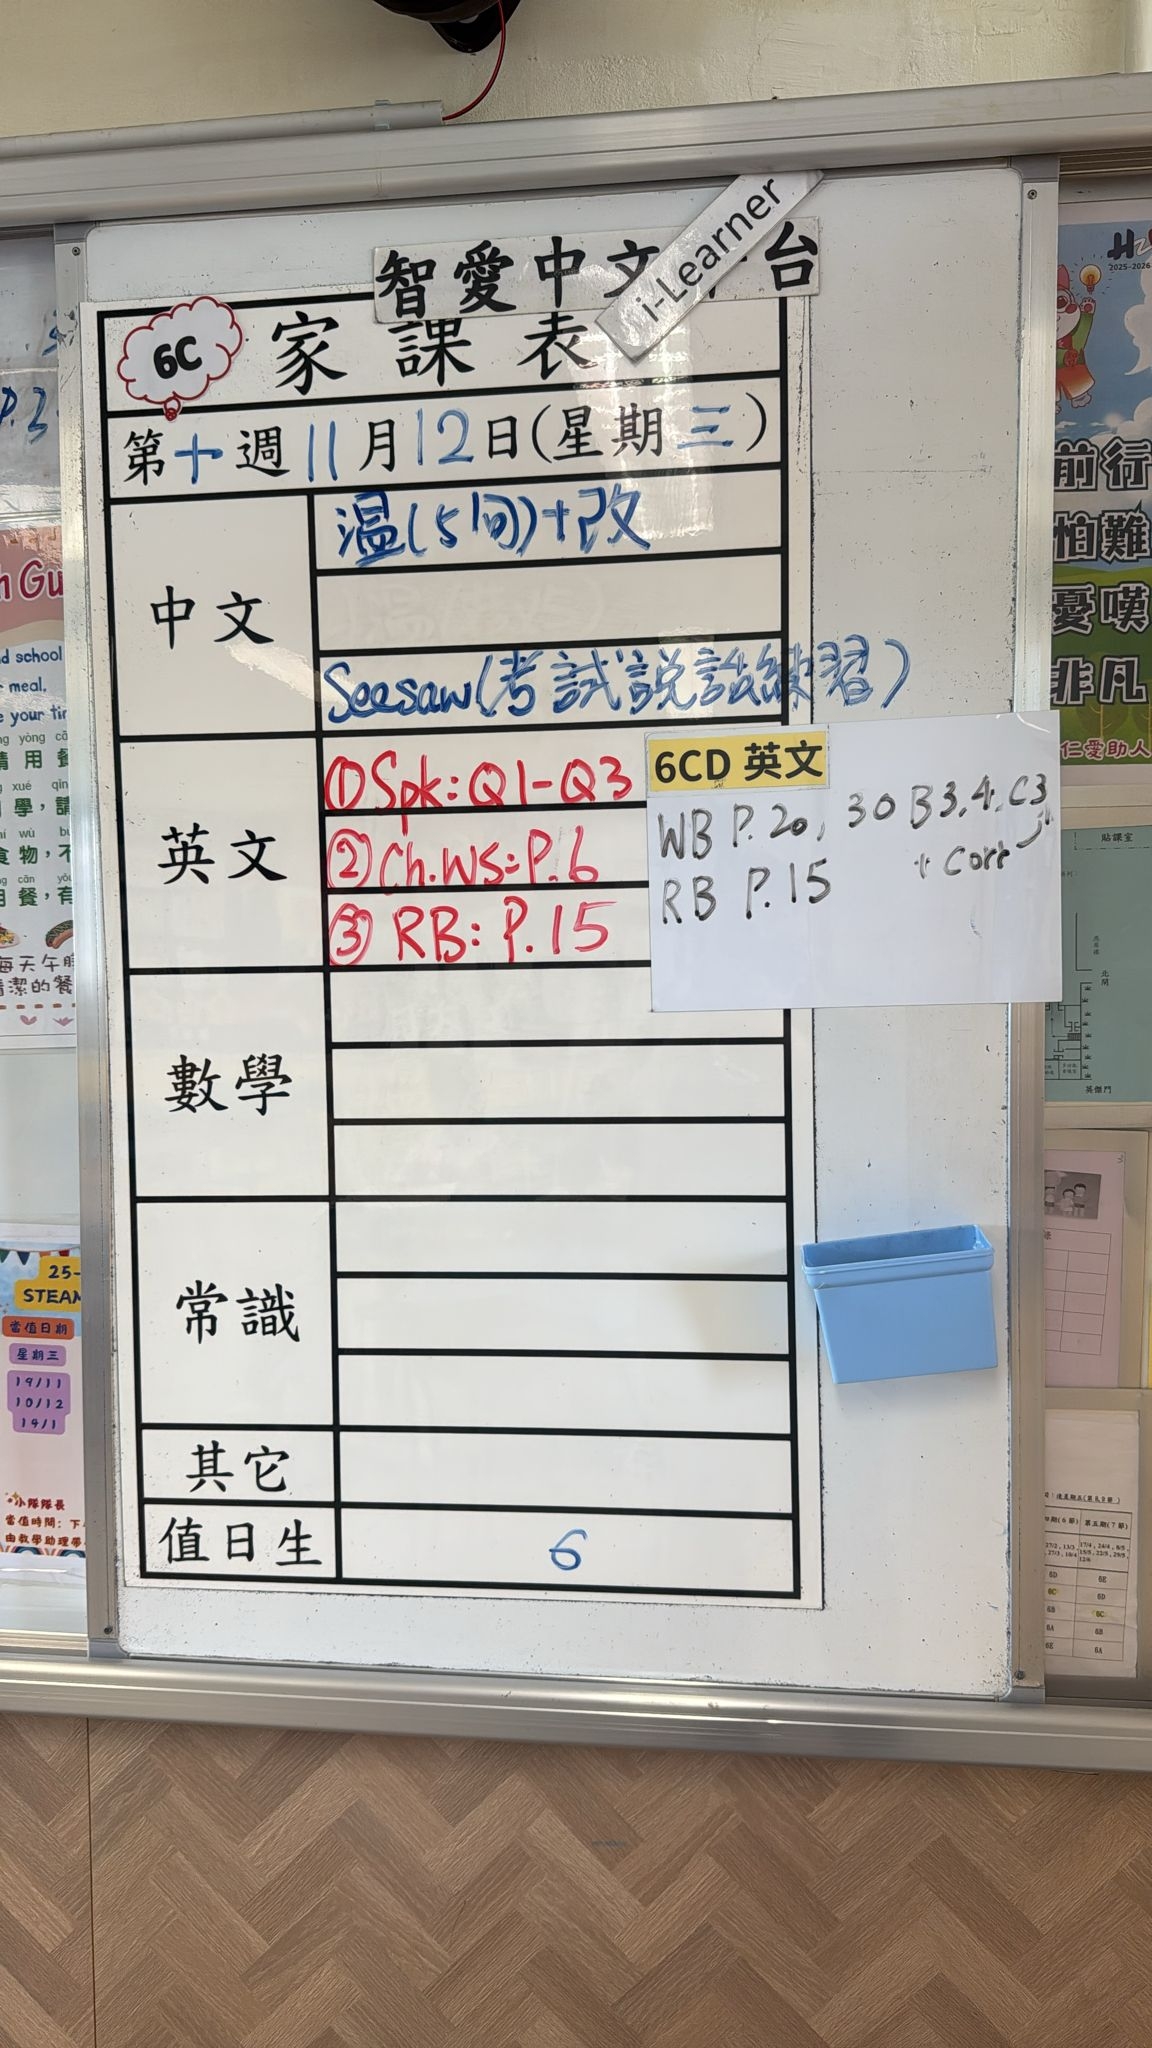 智愛中文平台
i-Learner
6C
家課表
第十週11月12日(星期三)
中文
温(5個)+改
Seesaw(考試說話練習)
英文
①Spk:Q1-Q3
②Ch.WS:P.6
③RB:P.15
6CD 英文
WB P.20, 30 B3,4, C3
+ Corr
RB P.15
數學
常識
其它
值日生
6
P.3
d school
meal,
e your tin
25-
STEAM
當值日期
星期三
19/11
10/12
14/1
小隊隊長
當值時間：下
由教學助理帶
2025-2026
前行
怕難
憂嘆
非凡
仁愛助人
貼課室
北閘
英傑門
第五期(7節)
6D
6E
6C
6D
6B
6C
6A
6B
6E
6A